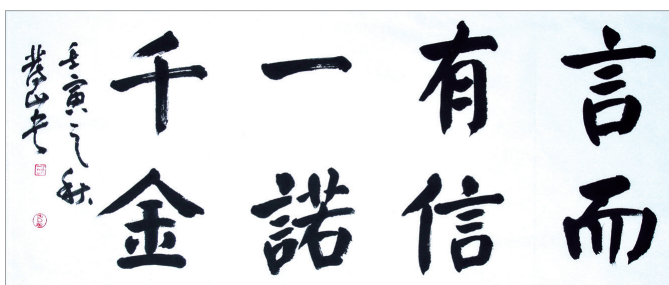 言而
有信
一諾
千金
壬寅之秋
山书